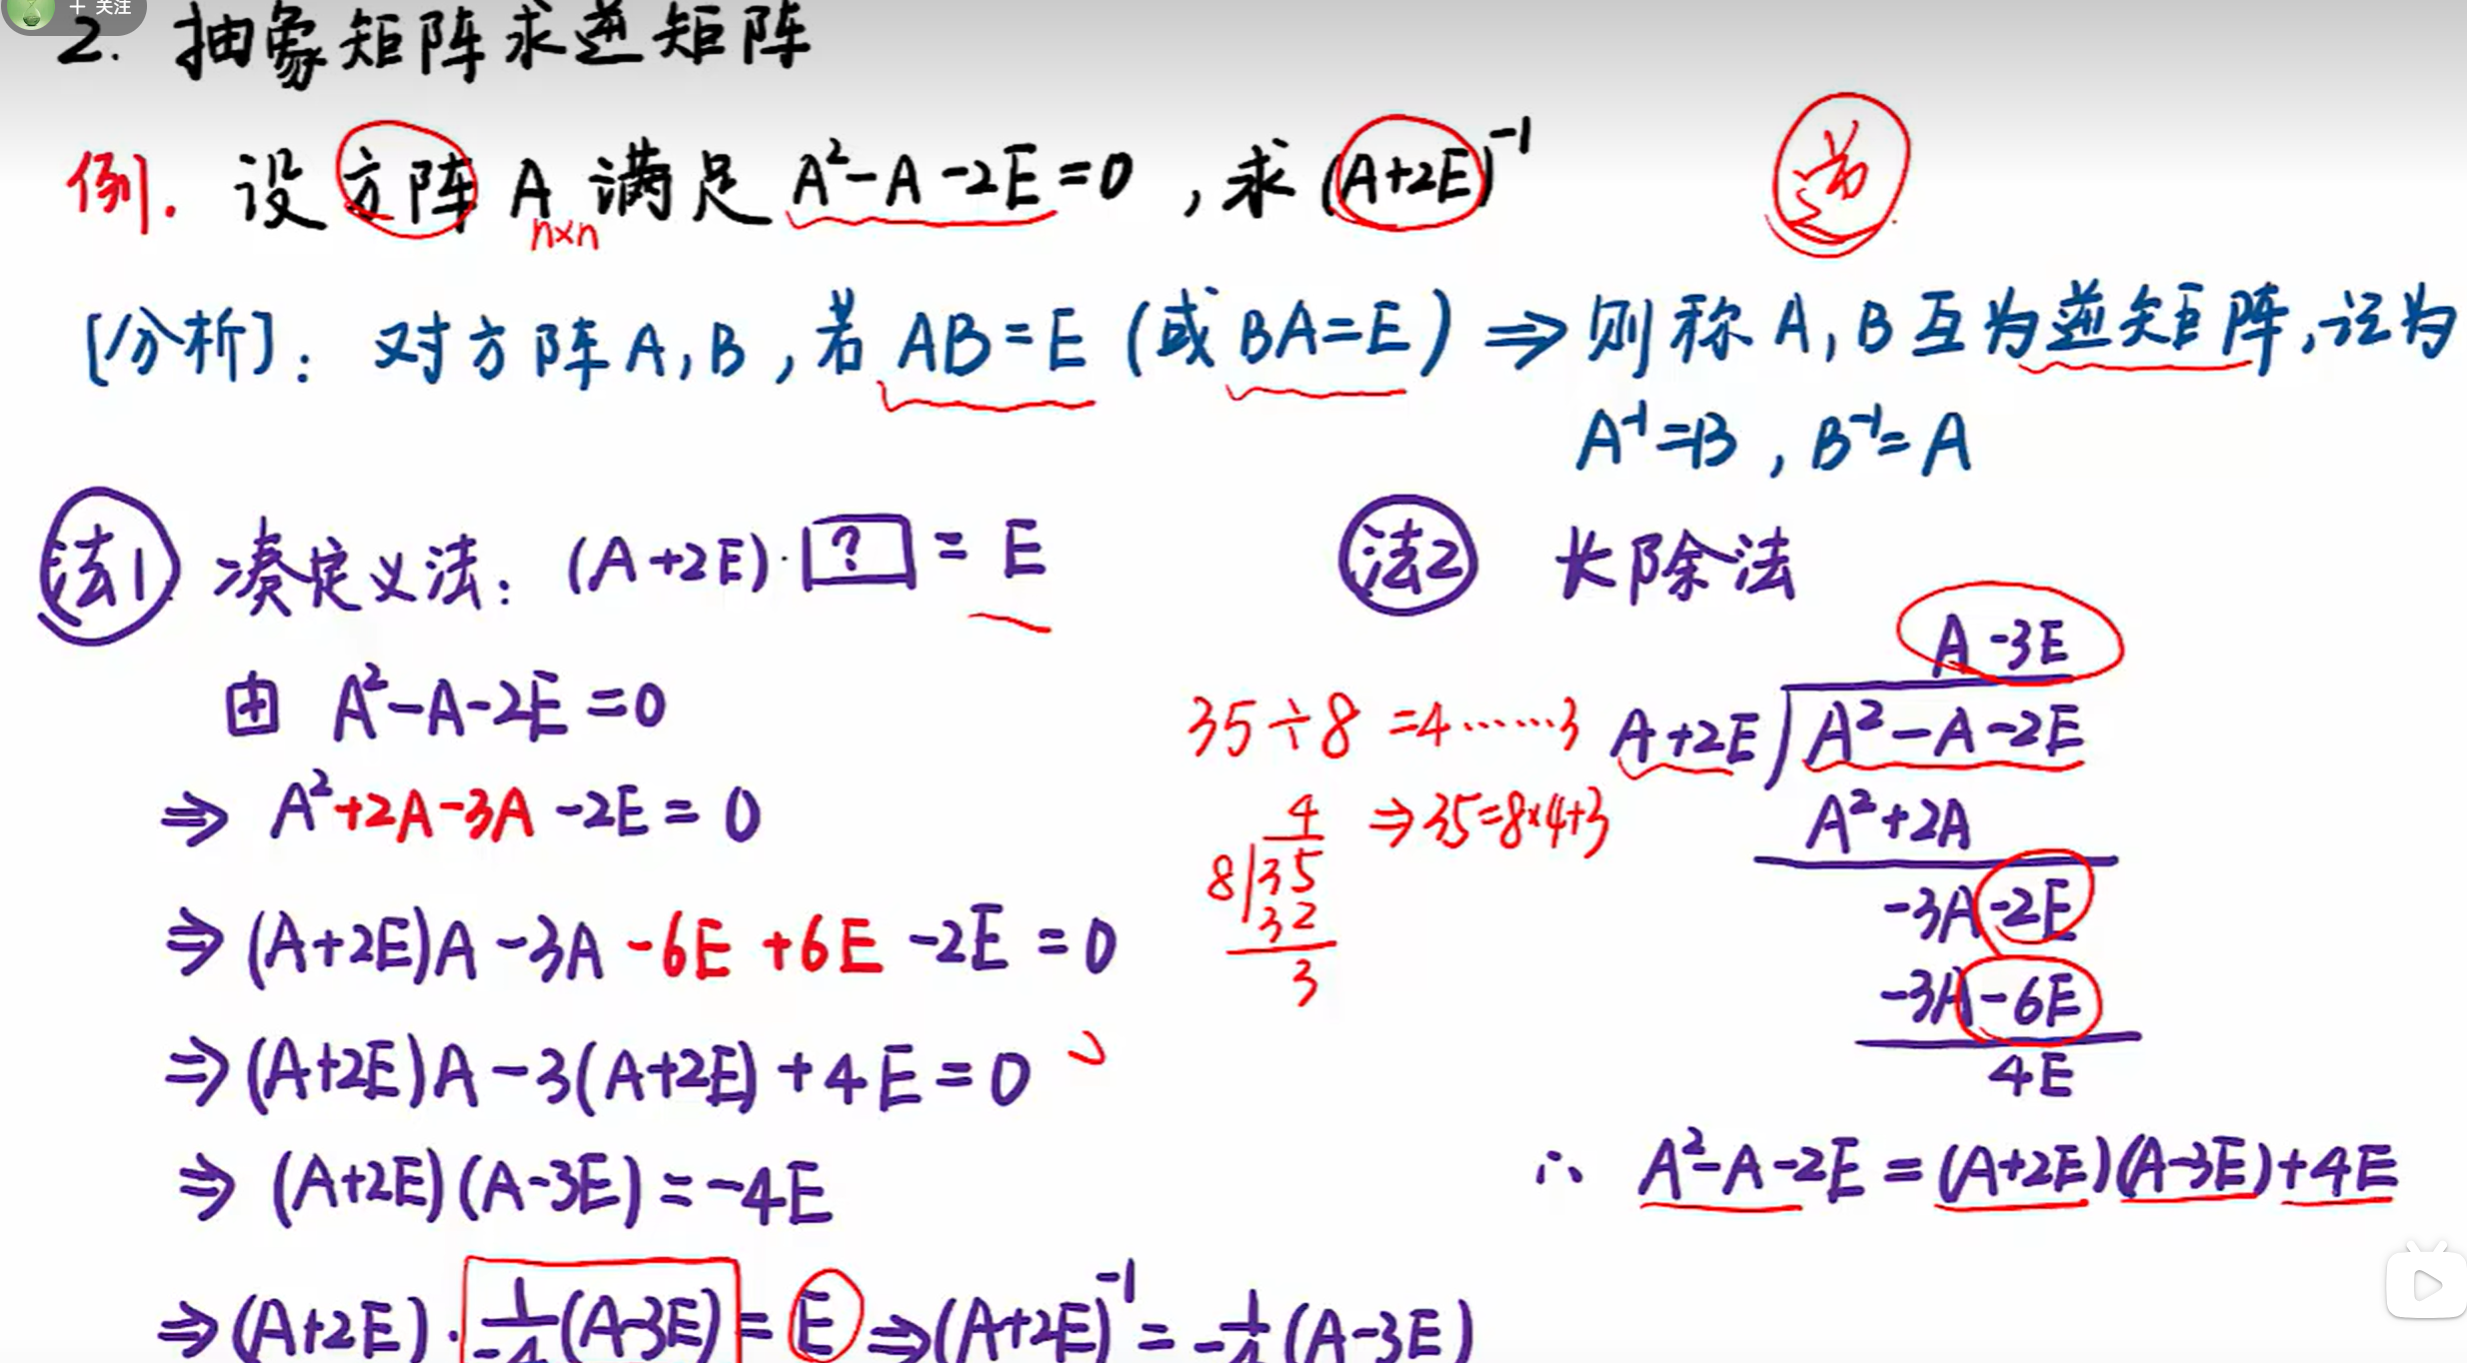 + 关注
2. 抽象矩阵求逆矩阵
例. 设方阵 A 满足 A²-A-2E=0 , 求 (A+2E)⁻¹
n×n
[分析]: 对方阵 A, B , 若 AB=E (或 BA=E) ⇒ 则称 A, B 互为逆矩阵, 记为
A⁻¹=B , B⁻¹=A
法1 凑定义法: (A+2E)·[?] = E
由 A²-A-2E=0
⇒ A²+2A-3A-2E=0
⇒ (A+2E)A-3A-6E+6E-2E=0
⇒ (A+2E)A-3(A+2E)+4E=0
⇒ (A+2E)(A-3E)=-4E
⇒ (A+2E)·1/-4(A-3E)=E ⇒ (A+2E)⁻¹=-1/4(A-3E)
法2 长除法
35÷8=4……3
⇒35=8×4+3
4
8 35
32
3
A-3E
A+2E A²-A-2E
A²+2A
-3A-2E
-3A-6E
4E
∴ A²-A-2E=(A+2E)(A-3E)+4E